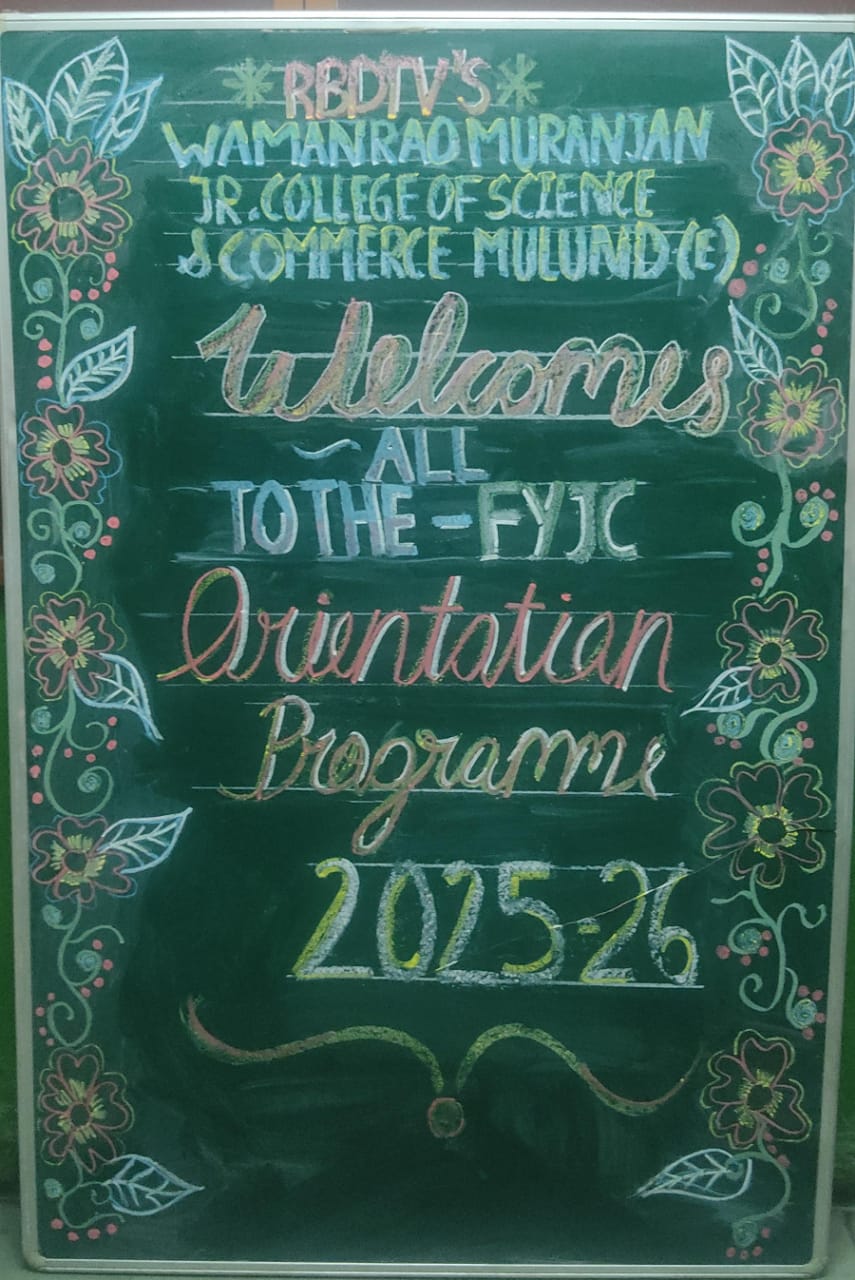 RBDTV'S
WAMANRAO MURANJAN
JR. COLLEGE OF SCIENCE
& COMMERCE MULUND-(E)
Welcomes
~ ALL
TO THE - FYJC
Orientation
Programme
2025-26